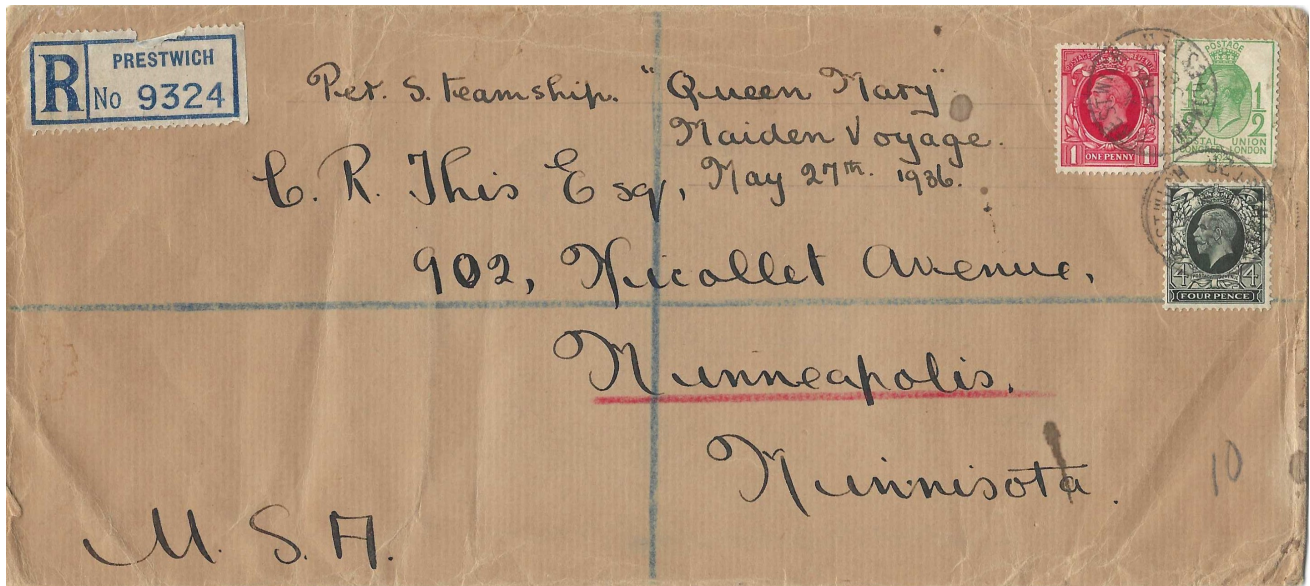 R PRESTWICH
No 9324
Per. Steamship. "Queen Mary"
Maiden Voyage.
May 27th. 1936.
C. R. This Esq,
902, Nicollet Avenue,
Minneapolis.
Minnisota.
U. S. A.
10
ONE PENNY
1 1
POSTAGE
1/2
POSTAL UNION
CONGRESS LONDON
4 4
FOUR PENCE